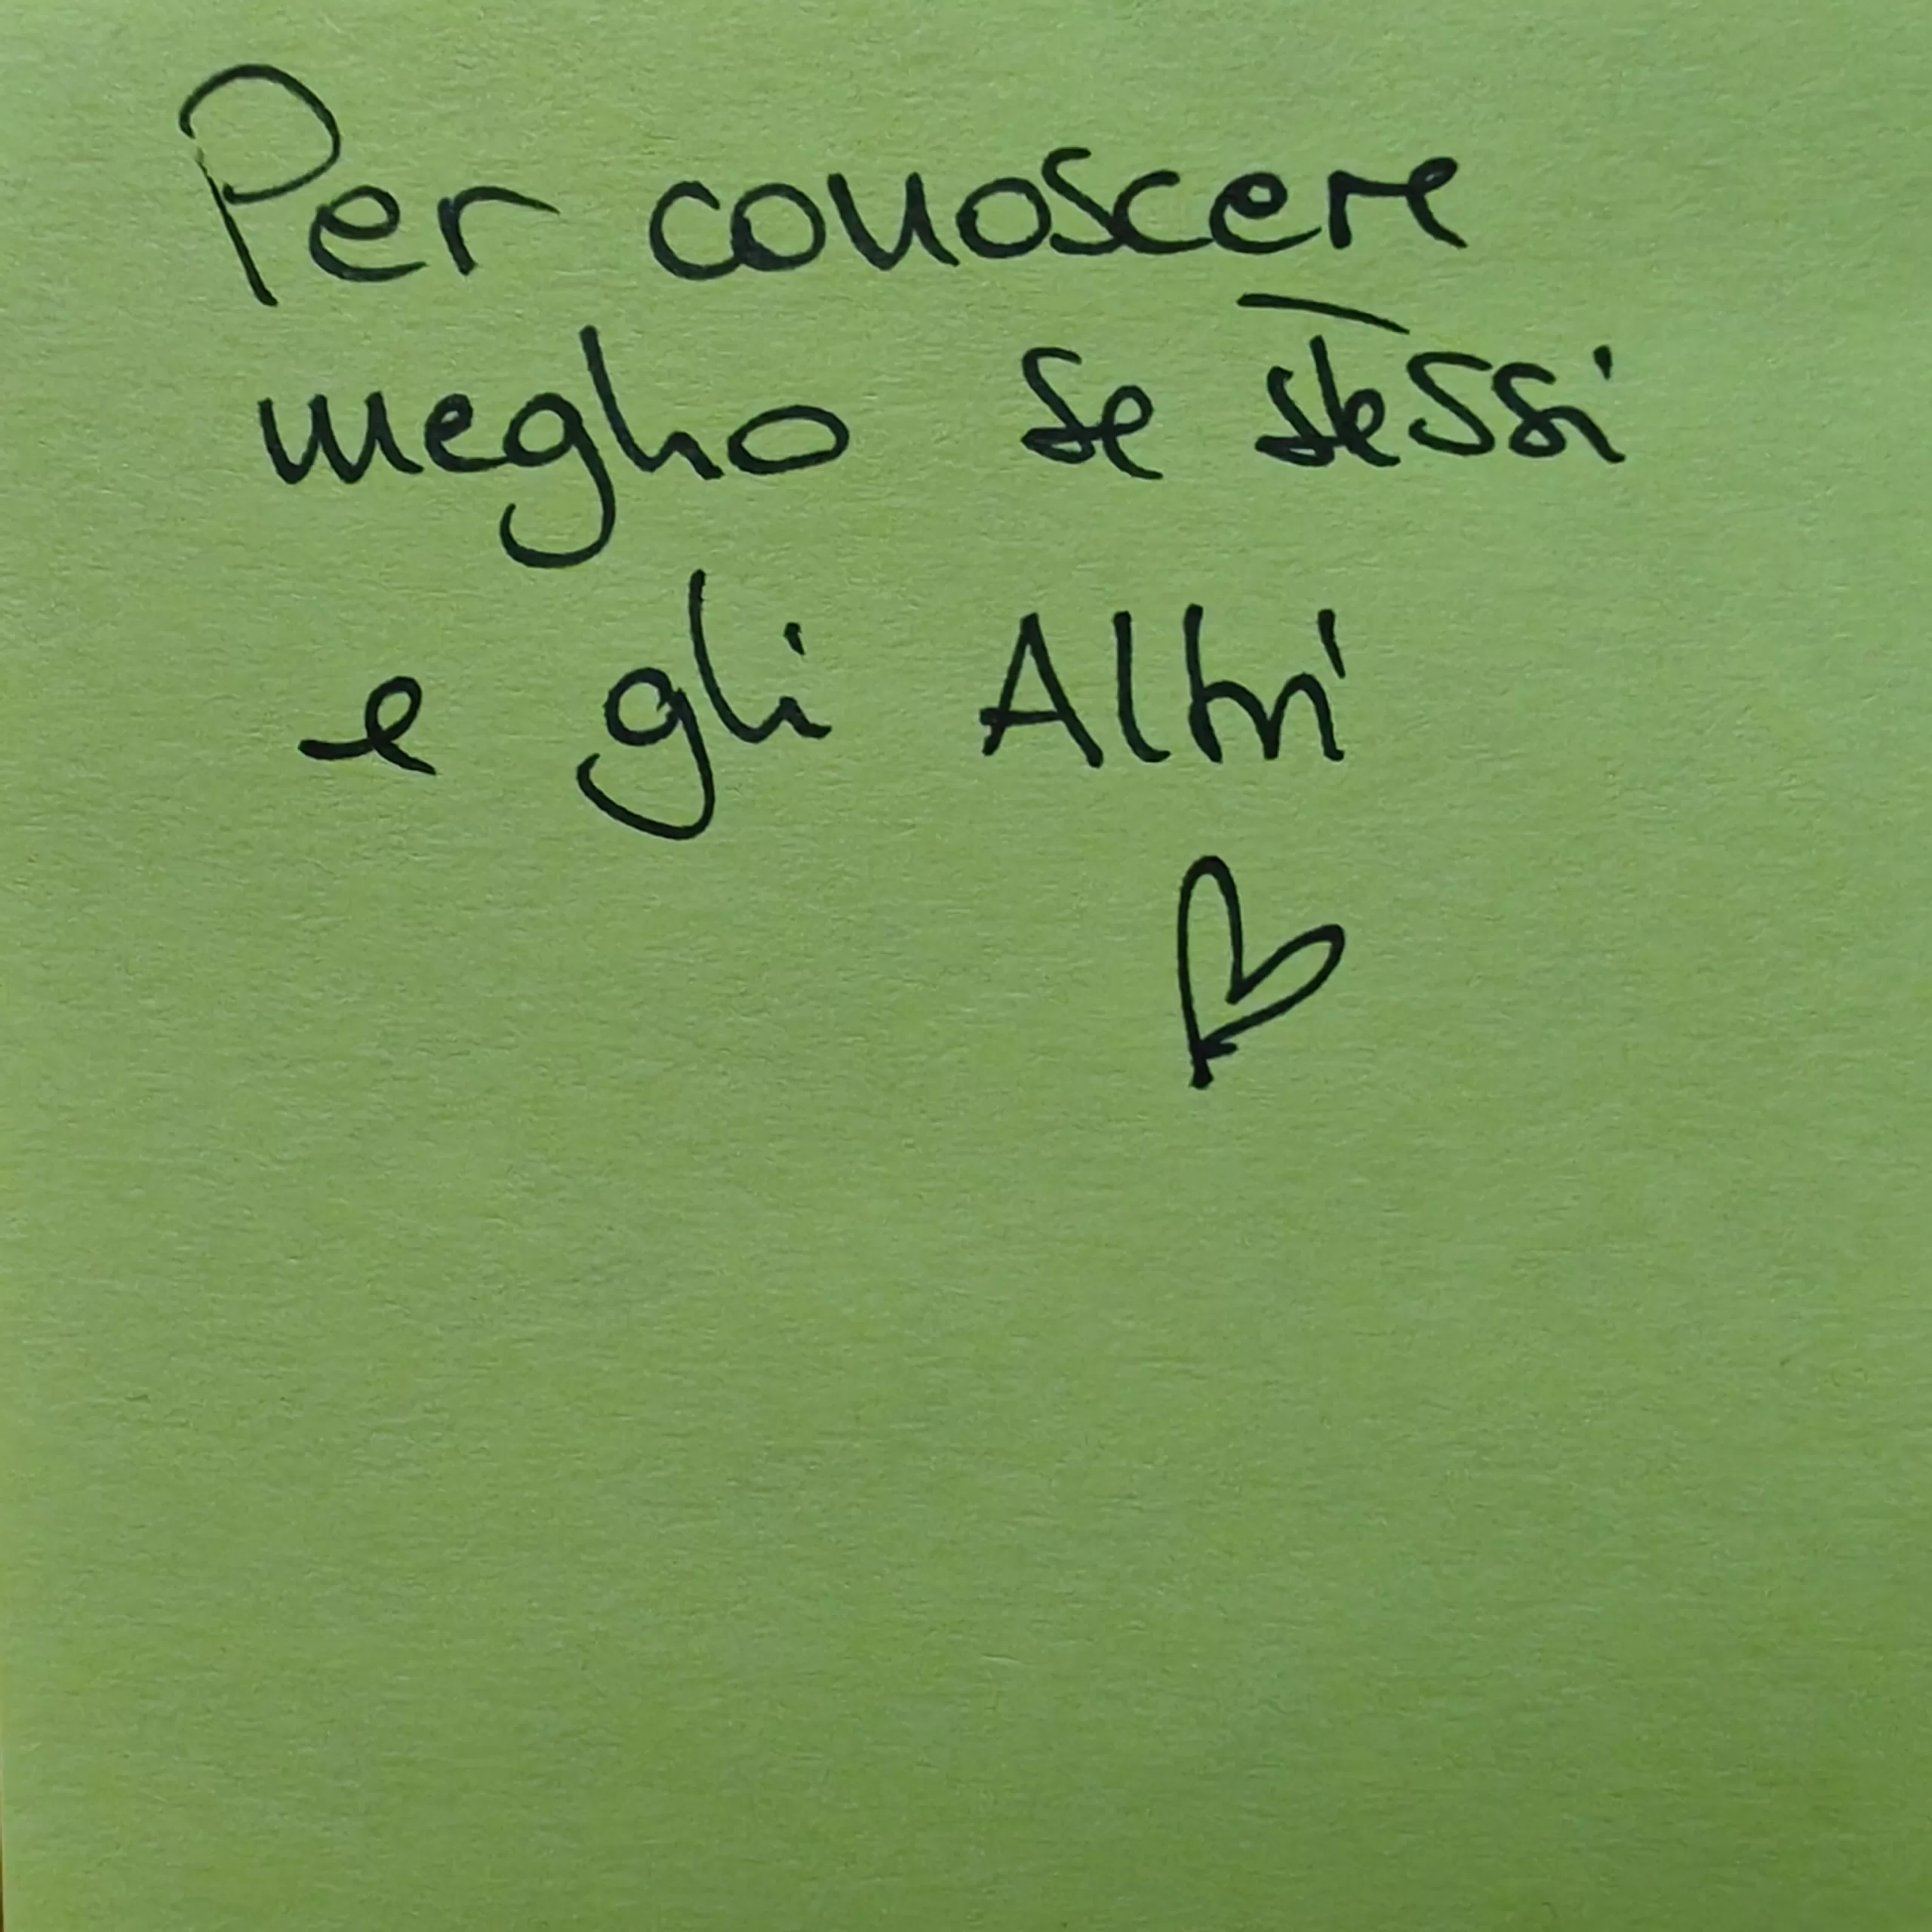 Per conoscere
meglio se stessi
e gli Altri